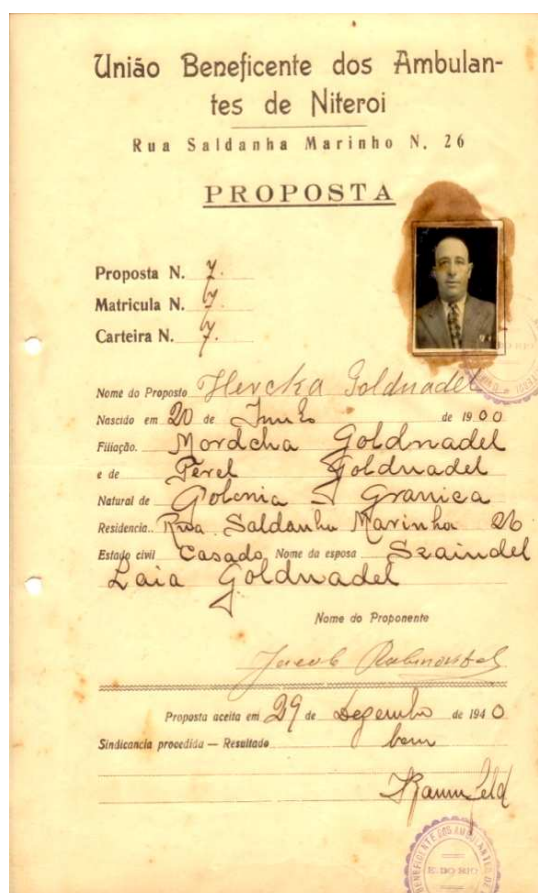 União Beneficente dos Ambulan-
tes de Niteroi
Rua Saldanha Marinho N. 26
PROPOSTA
Proposta N. 7.
Matricula N. 7
Carteira N. 7.
Nome do Proposto Hercka Goldnadel
Nascido em 20 de Junho de 1900
Filiação. Mordcha Goldnadel
e de Perel Goldnadel
Natural de Polonia Granica
Residencia.. Rua Saldanha Marinha 26
Estado civil Casado Nome da esposa Szaindel
Laia Goldnadel
Nome do Proponente
Jacob
Proposta aceita em 29 de Dezembro de 1940
Sindicancia procedida — Resultado bom
BENEFICENTE DOS AMBULANTES DE
E. DO RIO